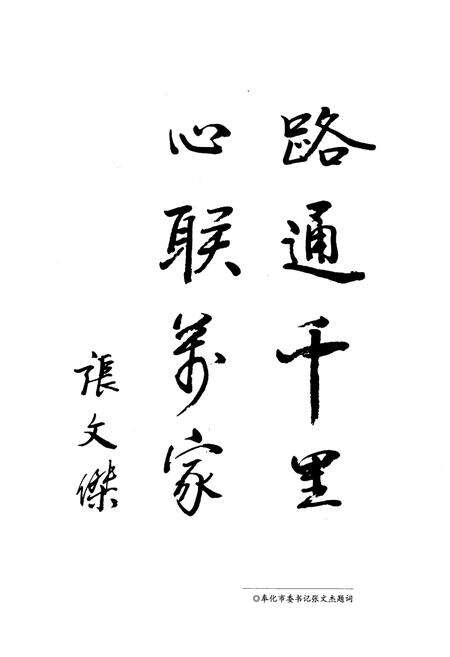 路通千里
心联萬家
張文傑
◎奉化市委书记张文杰题词